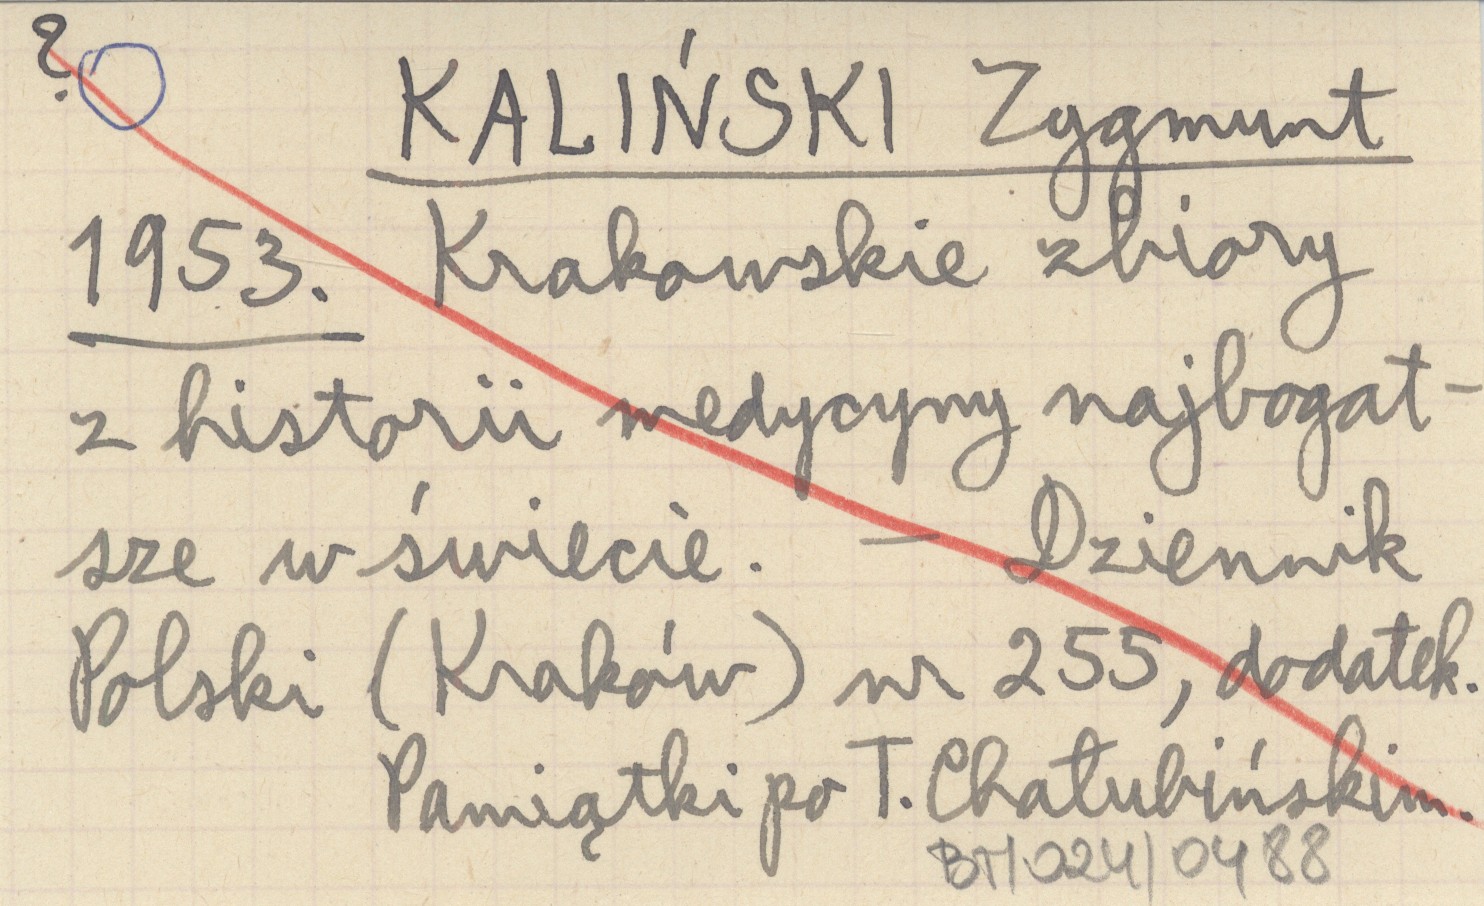 ?
KALIŃSKI Zygmunt
1953. Krakowskie zbiory
z historii medycyny najbogat-
sze w świecie. – Dziennik
Polski (Kraków) nr 255, dodatek.
Pamiątki po T. Chałubińskim.
BT/024/0488